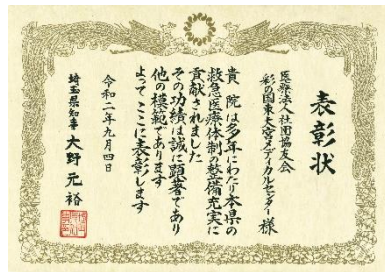 表彰状
医療法人社団協友会
彩の国東大宮メディカルセンター 様
貴院は多年にわたり本県の
救急医療体制の整備充実に
貢献されました
その功績は誠に顕著であり
他の模範であります
よってここに表彰します
令和二年九月四日
埼玉県知事 大野元裕